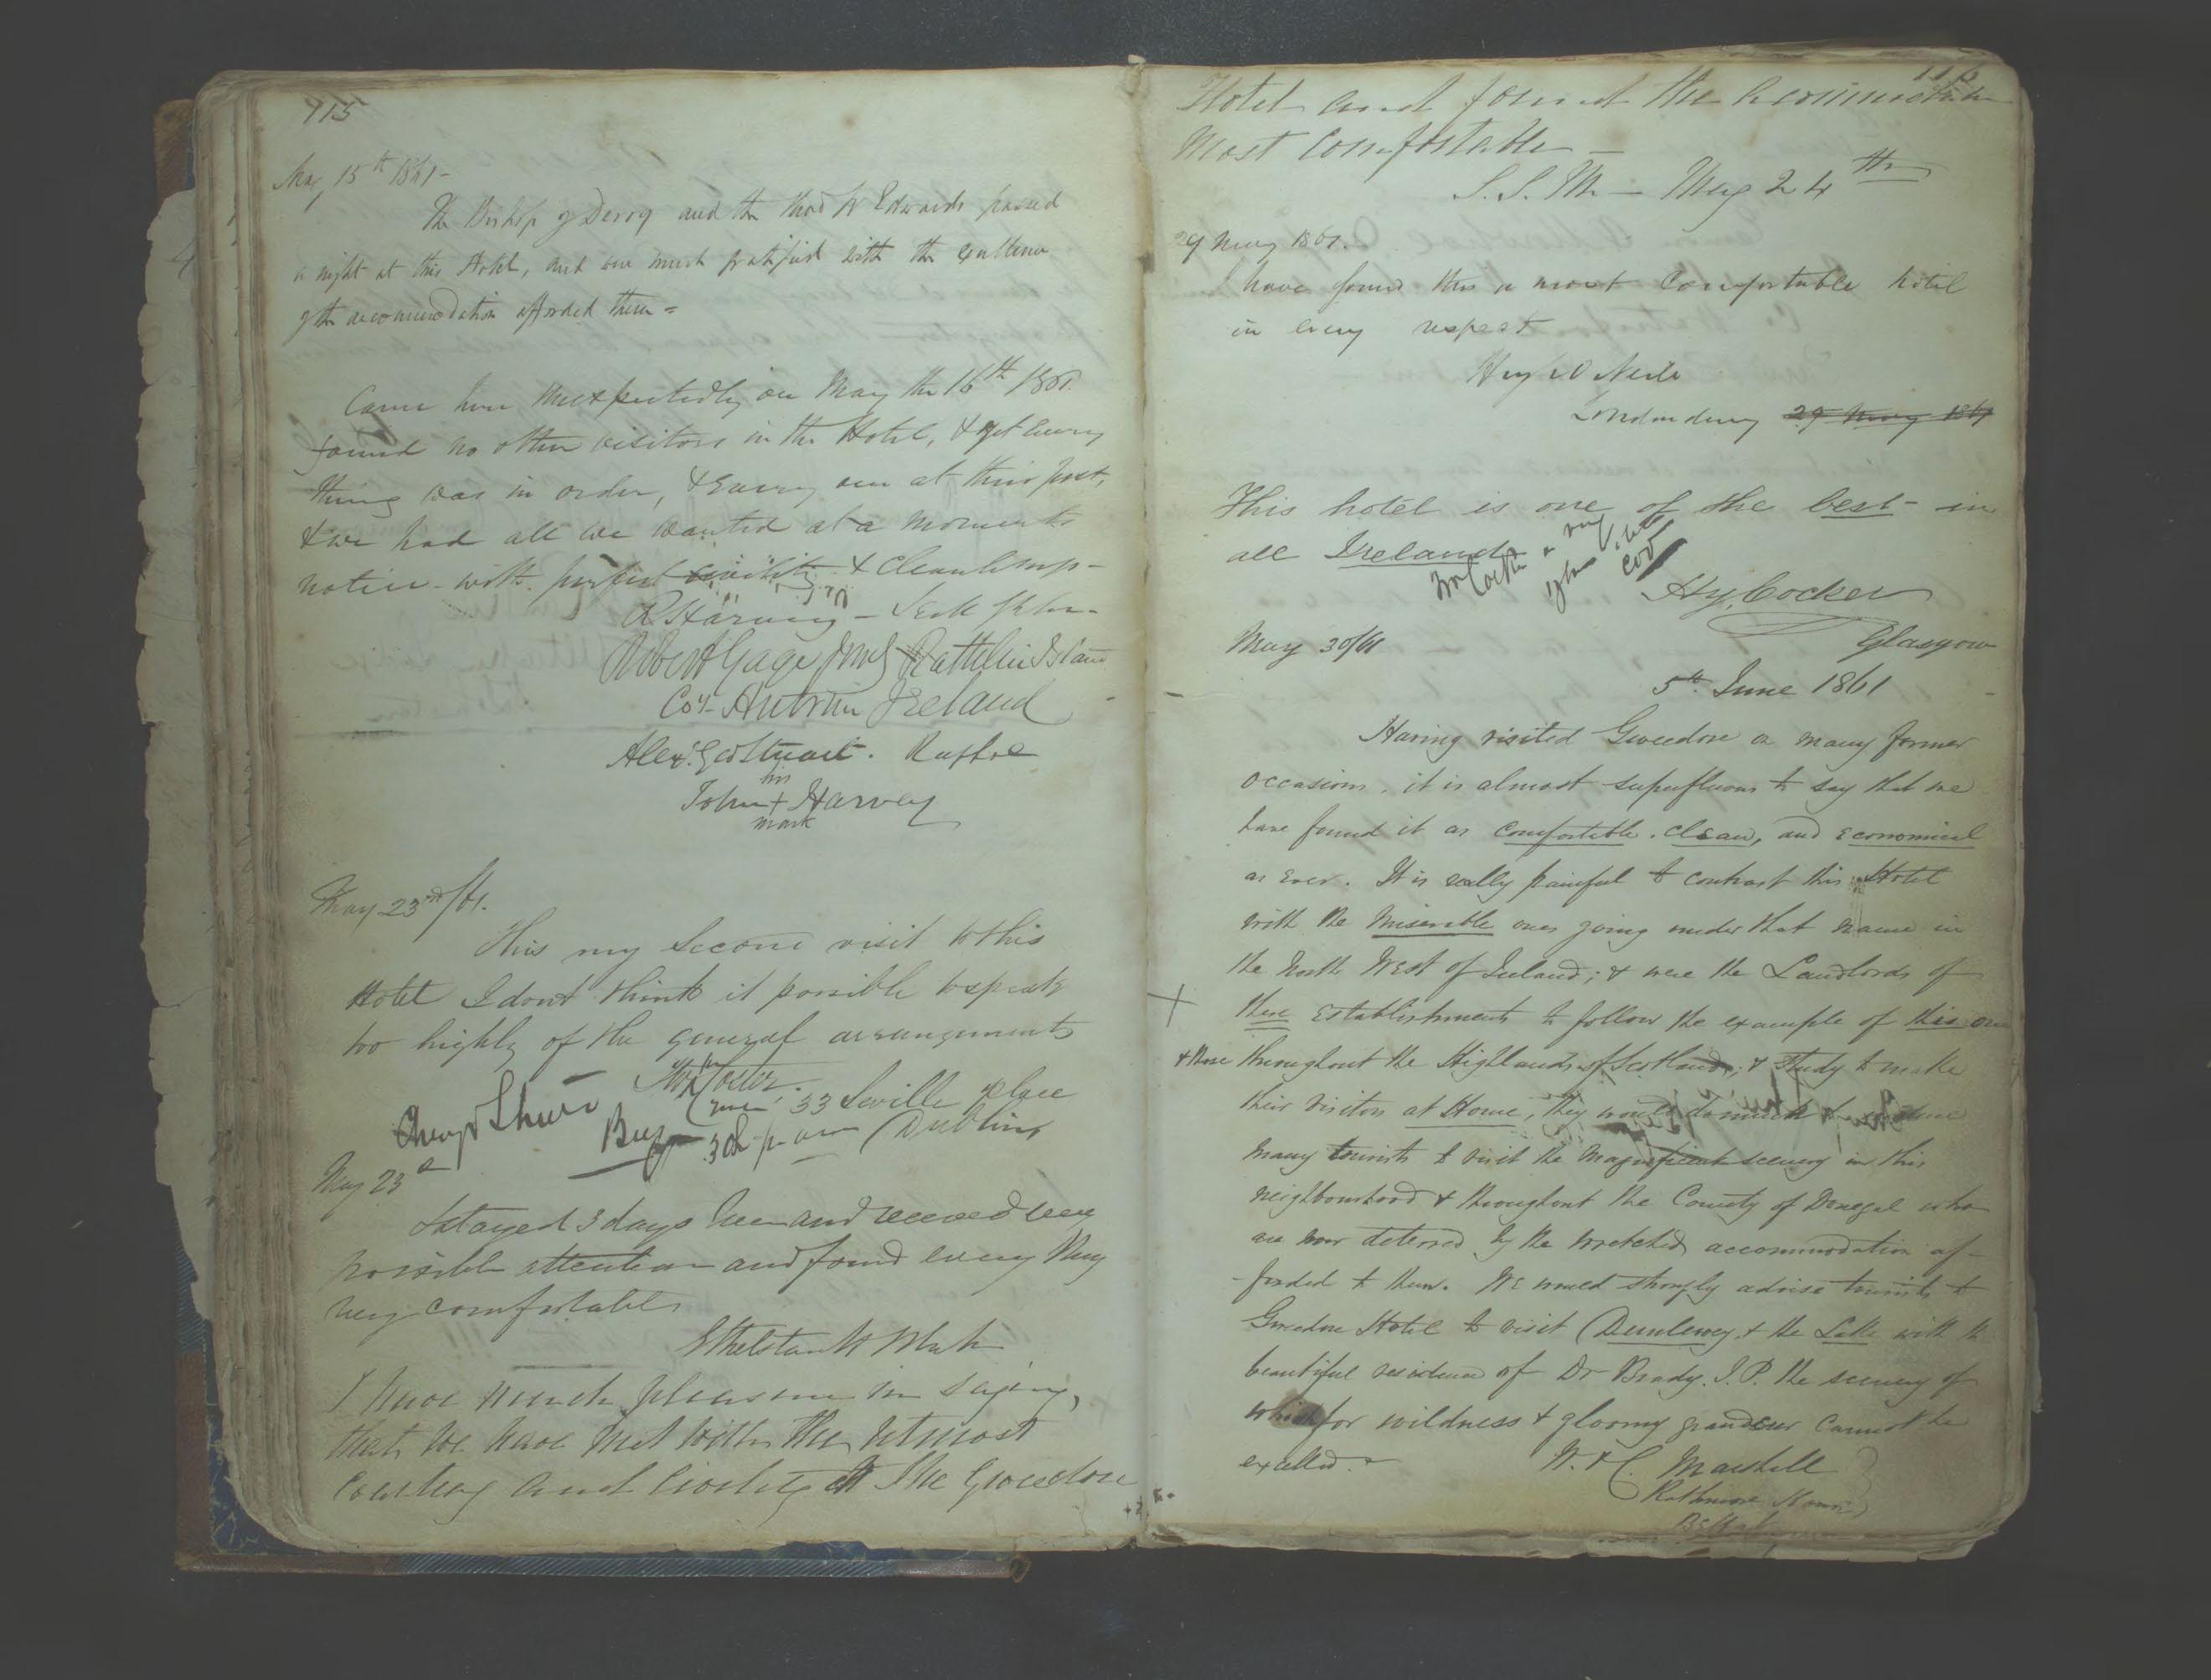 115
May 15th 1861 -
The Bishop of Derry and the W Edwards passed
a night at this Hotel, and are much gratified with the excellence
of the accommodation afforded them =
Came here unexpectedly on May the 16th 1861.
found no other visitors in the Hotel, & yet every
thing was in order, & every one at their post,
& we had all we wanted at a moments
notice - with perfect civility & cleanliness -
R Harvey -
Robert Gage Rathlin Island
Coy. Antrim Ireland
Alexr. Stuart. Raphoe
his
John + Harvey
mark
May 23rd/61.
This my second visit to this
Hotel I dont think it possible to speak
too highly of the general arrangements
Foster
33 Seville place
Dublin
May 23d
I stayed 3 days here and received every
possible attention and found every thing
very comfortable
I have much pleasure in saying,
that we have met with the utmost
courtesy and civility at the Gweedore
116
Hotel and found the accommodation
most comfortable -
S.S.M - May 24th
29 May 1861.
I have found this a most comfortable hotel
in every respect
Londonderry 29 May 1861
This hotel is one of the best - in
all Ireland
Hy. Cocker
May 30/61 Glasgow
5th. June 1861
Having visited Gweedore on many former
occasions, it is almost superfluous to say that we
have found it as comfortable, clean, and economical
as ever. It is really painful to contrast this Hotel
with the miserable ones going under that name in
the North West of Ireland; & were the Landlords of
+ these establishments to follow the example of this one
& those throughout the Highlands of Scotland; & study to make
their visitors at Home, they would do much to induce
many tourists to visit the magnificent scenery in this
neighbourhood & throughout the County of Donegal who
are now deterred by the wretched accommodation af-
-forded to them. We would strongly advise tourists to
Gweedore Hotel to visit Dunlewey & the Lake with the
beautiful residence of Dr Brady. J.P. the scenery of
which for wildness & gloomy grandeur cannot be
excelled. -
W. & C. Marshall
Rathmore House
Belfast